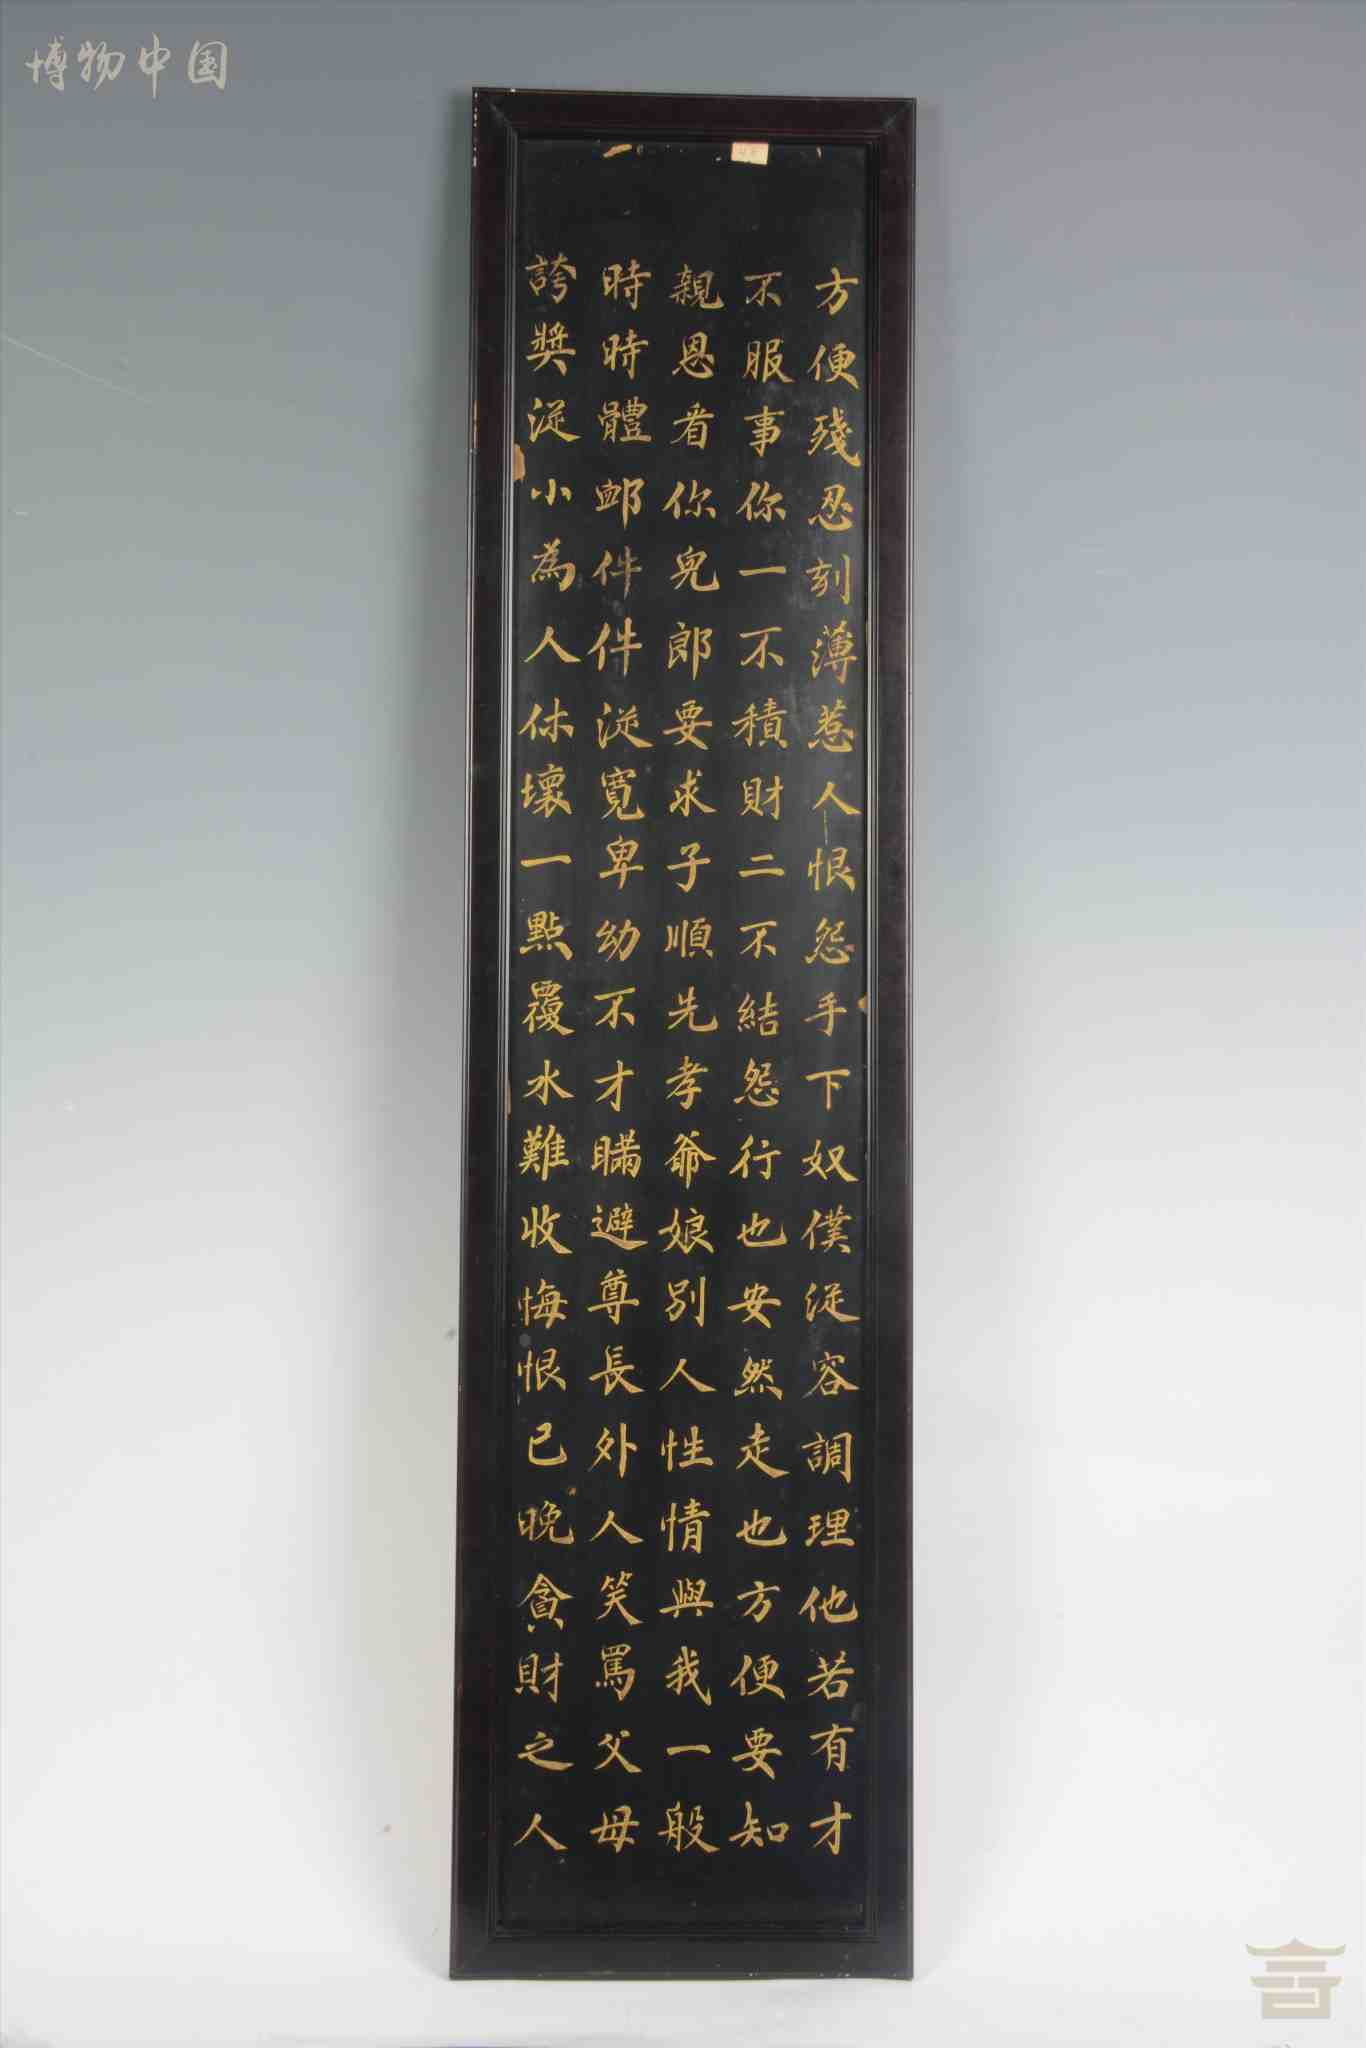 博物中国
方便殘忍刻薄惹人恨怨手下奴僕從容調理他若有才
不服事你一不積財二不結怨行也安然走也方便要知
親恩看你兒郎要求子順先孝爺娘別人性情與我一般
時時體卹件件從寬卑幼不才瞞避尊長外人笑罵父母
誇獎從小為人休壞一點覆水難收悔恨已晚貪財之人